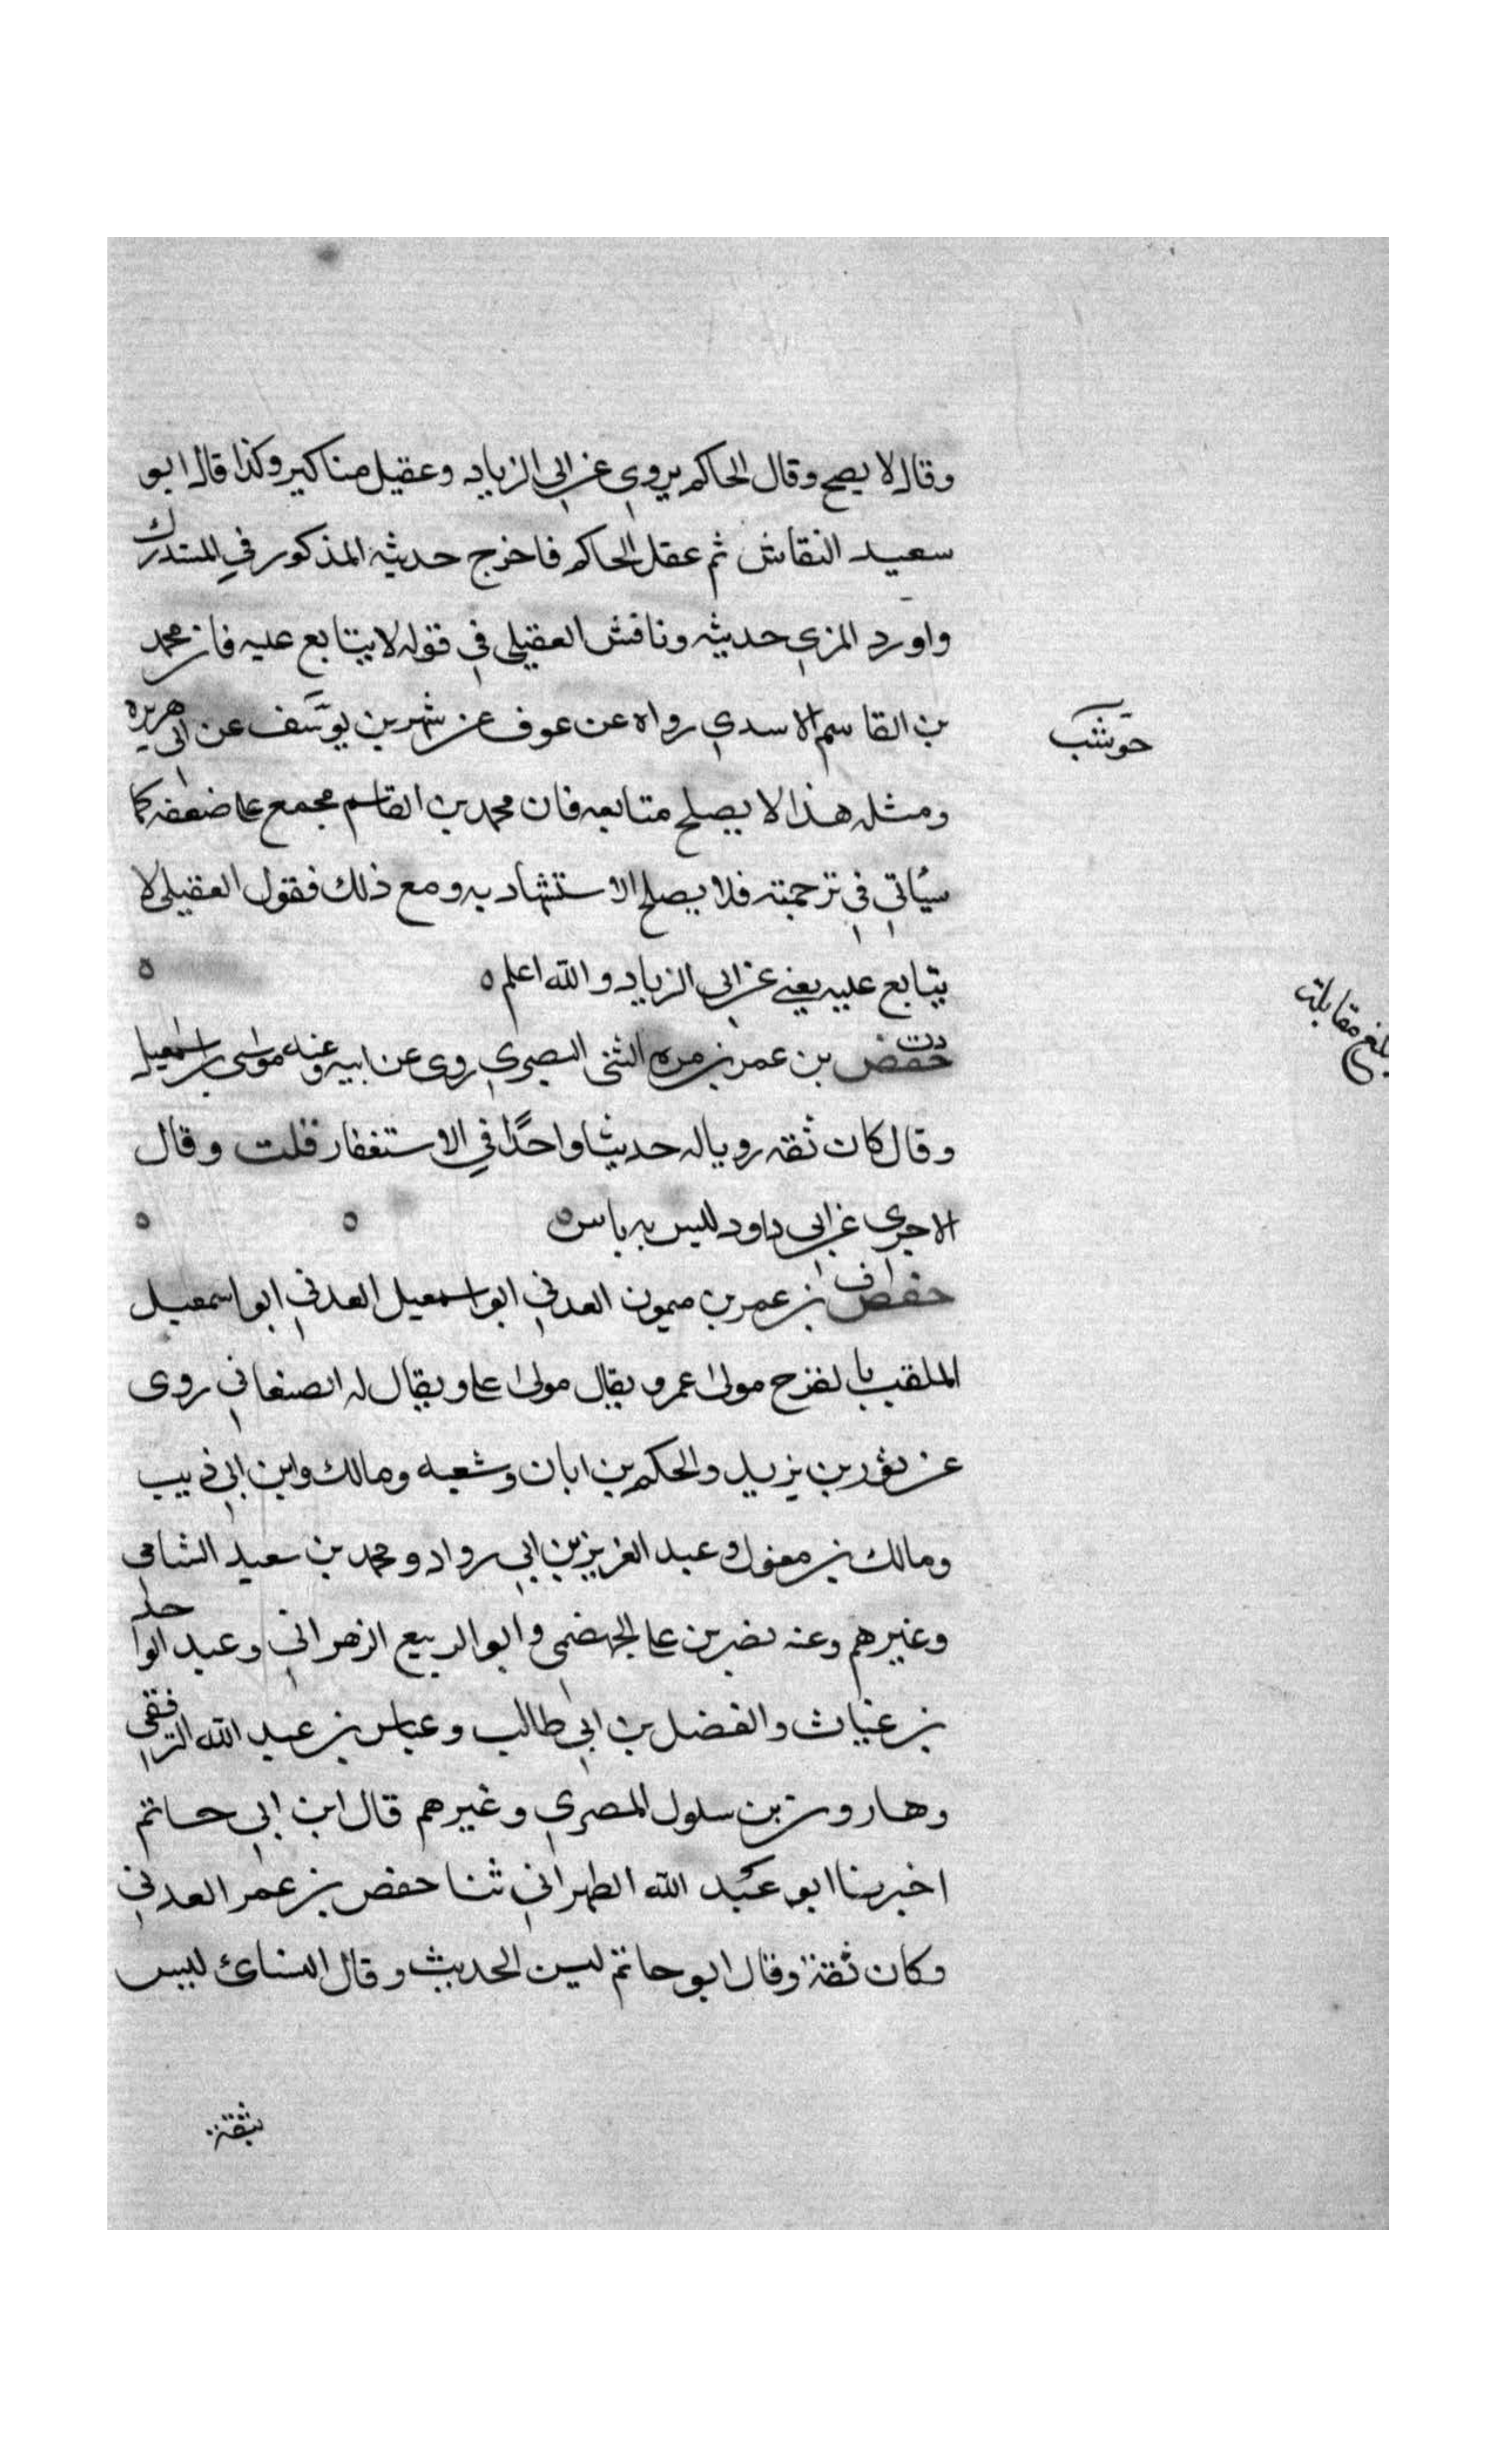 وقال لا يصح وقال الحاكم يروي عن ابي الزياد وعقيل مناكير وكذا قال ابو
سعيد النقاش ثم عقل الحاكم فاخرج حديثه المذكور في المستدرك
واورد المزي حديثه وناقش العقيلي في قوله لا يتابع عليه فان محمد
بن القاسم الاسدي رواه عن عوف عن شهر بن يوسف عن ابي هريره
حوشب
ومثله هذا لا يصلح متابعه فان محمد بن القاسم مجمع على ضعفه كما
سياتي في ترجمته فلا يصلح الاستشهاد به ومع ذلك فقول العقيلي لا
يتابع عليه يعني عن ابي الزياد والله اعلم ه ه
بلغ مقابلة
دت
حفص بن عمر بن مره الشني البصري روى عن ابيه وعنه موسى بن اسمعيل
وقال كان ثقه رويا له حديثا واحدًا في الاستغفار قلت وقال
الاجري عن ابي داود ليس به باس ه ه ه
ق
حفص بن عمر بن ميمون العدني ابو اسمعيل العدني ابو اسمعيل
الملقب بالفرخ مولى عمر ويقال مولى على ويقال له الصنعاني روى
عن ثور بن يزيد والحكم بن ابان وشعبه ومالك وابن ابي ذيب
ومالك بن مغول وعبد العزيز بن ابي رواد ومحمد بن سعيد الشامي
وغيرهم وعنه نصر بن على الجهضمي وابو الربيع الزهراني وعبد الواحد
بن غياث والفضل بن ابي طالب وعباس بن عبد الله الترقفي
وهارون بن سلول المصري وغيرهم قال ابن ابي حاتم
اخبرنا ابو عبد الله الطهراني ثنا حفص بن عمر العدني
وكان ثقة وقال ابو حاتم لين الحديث وقال النسائ ليس
بثقة